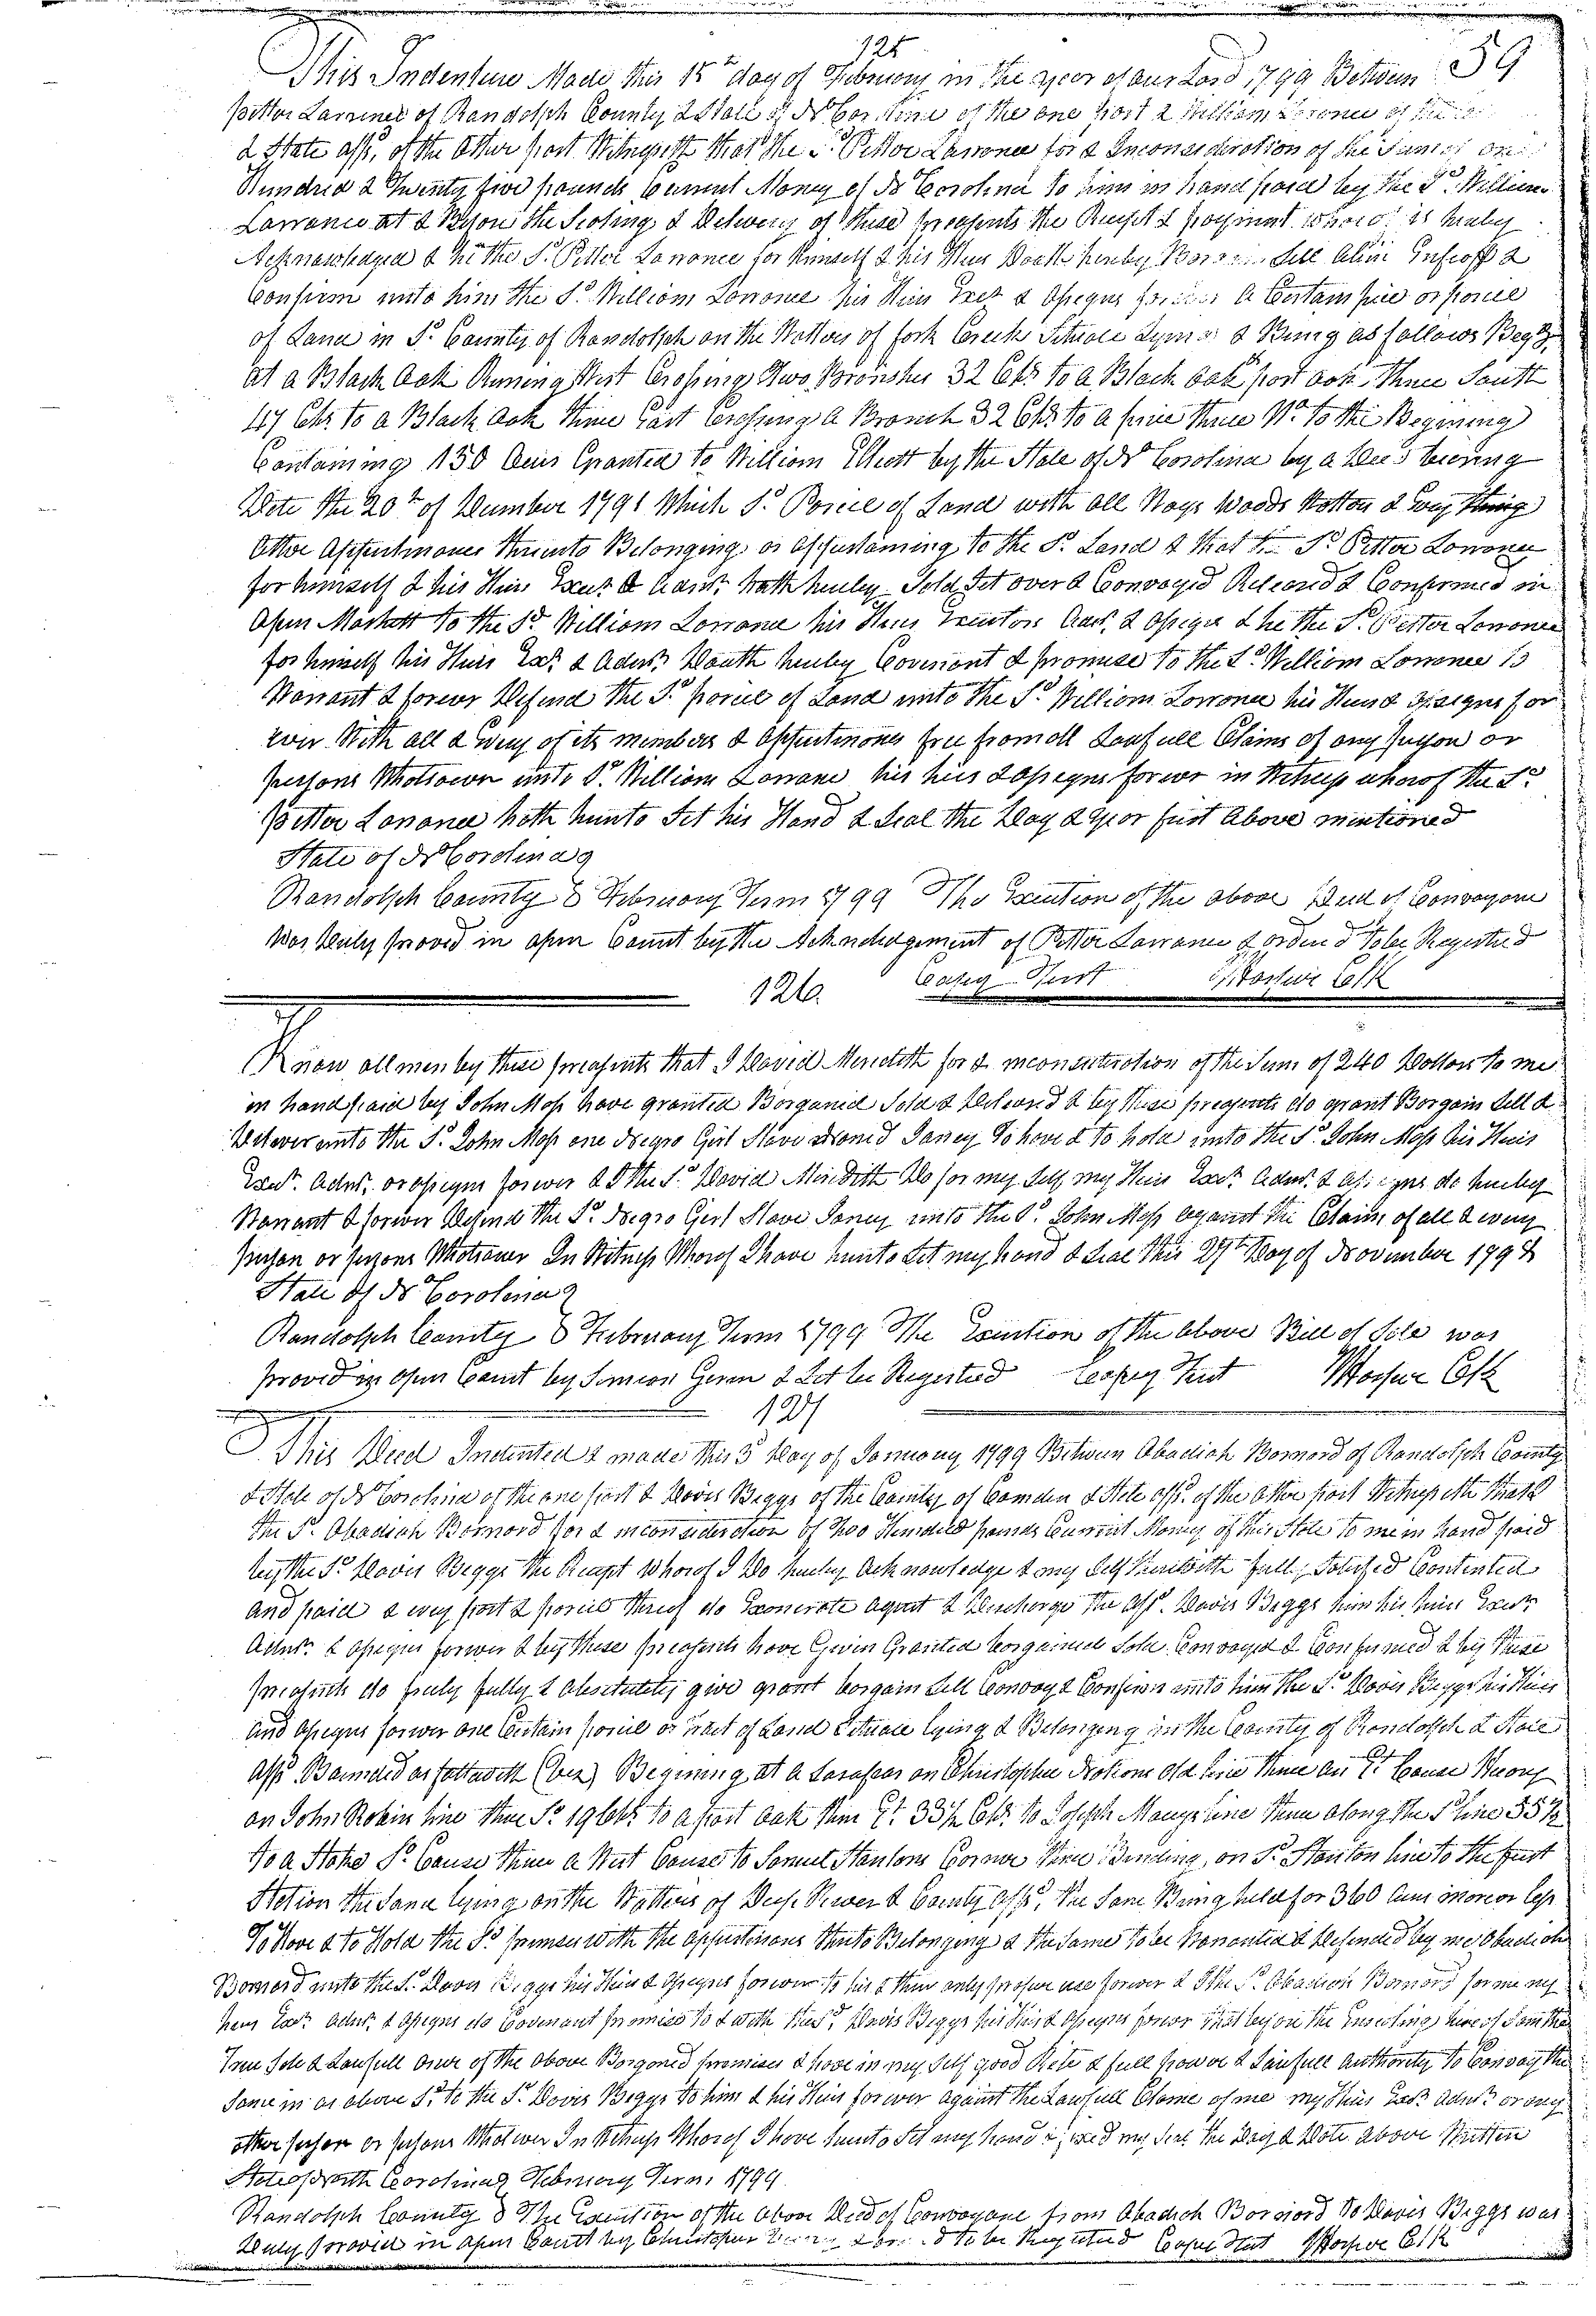 125
59
This Indenture Made this 15th day of February in the year of our Lord 1799 Between
Petter Larrance of Randolph County & State of No Carolina of the one part & William Larance of the
& State affs. of the Other part Witnesseth that the Sd. Petter Larrance for & Inconsideration of the Sum of one
Hundred & Twenty five pounds Current Money of No Carolina to him in hand paid by the Sd. William
Larrance at & Before the Sealing & Delivery of these preasents the Receipt & payment whereof is hereby
Acknowledged & he the Sd. Petter Larrance for himself & his Heirs Doath hereby Bargain Sell Alien Infeoff &
Confirm unto him the Sd. William Larrance his Heirs Exet & Assigns forever A Certain piece or parcel
of Land in Sd. County of Randolph on the Watters of fork Creek Situate Lying & Being as follows Begg
at a Black Oak Runing West Crossing Two Branches 32 Chs to a Black Oak post oak Thence South
47 Chs. to a Black Oak thence East Crossing A Branch 32 Chs to a pine thence No. to the Begining
Containing 150 Acers Granted to William Elliott by the State of No Carolina by a Deed bearing
Date the 20th of December 1791 Which Sd. Parcel of Land with all Ways Woods Watters & Every thing
Other Appurtinances thereunto Belonging or appurtaining to the Sd. Land & that the Sd. Petter Larrance
for himself & his Heirs Exet. & Admr. hath hereby Sold Set over & Convayed Releasd & Confirmed in
Open Markett to the Sd. William Larrance his Heirs Executors Adm. & Assigns & he the Sd. Petter Larrance
for himself his Heirs Exr. & Admr. Doath hereby Covenant & promise to the Sd. William Larrance to
Warrant & forever Defend the Sd. parcel of Land unto the Sd. William Larrance his Heirs & Assigns for
ever With all & Every of its members & Appurtinances free from all Lawfull Claims of any person or
persons Whotsoever unto Sd. William Larrance his heirs & Assigns forever in Witness whereof the Sd.
Petter Larrance hath hunto Set his Hand & Seal the Day & Year first Above mentioned
State of No Carolina
Randolph County February Term 1799 The Execution of the above Deed of Convayance
Was Duly proved in open Court by the Acknoledgement of Petter Larrance & orderd to be Registred
126.
Know all men by these preasents that I David Meredith for & inconsideration of the Sum of 240 Dollars to me
in hand paid by John Moss have granted Barganed Sold & Deliverd & by these preasents do grant Bargain Sell &
Deliver unto the Sd. John Moss one Negro Girl Slave Named Janey To have & to hold unto the Sd. John Moss his Heirs
Exet. Admr. or assigns forever & I the Sd. David Meridith Do for my Self my Heirs Exr. Admr. & Assigns do hereby
Warrant & forever Defend the Sd. Negro Girl Slave Janey unto the Sd. John Moss against the Claim of all & every
person or persons Whotsoever In Witness Whereof I have hunto Set my hand & Seal this 29th Day of November 1798
State of No Carolina
Randolph County February Term 1799 The Execution of the Above Bill of Sale was
proved in open Court by Simeon Geren & Let be Registred
127
This Deed Indented & made this 3 Day of January 1799 Between Abadiah Barnard of Randolph County
& State of No Carolina of the one part & Davis Beggs of the County of Camden & State affs. of the Other part Witnesseth that I
the Sd. Abadiah Barnard for & inconsideration of Two Hundred pounds Current Money of this State to me in hand paid
by the Sd. Davis Beggs the Receipt Whereof I Do hereby Acknowledge & my Self therewith fully Satisfied Contented
and paid & every part & parcel thereof do Exonerate Aquit & Discharge the affs. Davis Beggs him his heirs Exetr
Admr. & assigns forever & by these preasents have Given Granted bargained Sold Convayed & Confirmed & by these
preasents do freely fully & Absolutely give grant bargain Sell Convay & Confirm unto him the Sd. Davis Beggs his Heirs
and assigns forever one Certain parcel or tract of Land Situate lying & Belonging in the County of Randolph & State
affs. Bounded as followeth (viz) Begining at a Sarafras on Christopher Nations old line thence an Et. Course
on John Robin line thence So. 19 Chs. to a post oak then Et. 33 1/2 Chs. to Joseph line then along the Sd line 55 1/2
to a Stake So. Course thence a West Course to Samuel Stantons Corner thence Binding on Sd. Stanton line to the first
Station the Same lying on the Watters of Deep River & County affs. the Same Being held for 360 Acers more or less
To Have & to Hold the Sd. premises with the appurtinances thereto Belonging & the Same to be Warranted & Defended by me Abadiah
Barnard unto the Sd. Davis Beggs his Heirs & Assigns forever to his & their only proper use forever & I the Sd. Abadiah Barnard for me my
heirs Exr. Admr. & Assigns do Covenant promise to & with the Sd. Davis Beggs his Heirs & Assigns forever that before the Ensealing hereof I am the
True Sole & Lawfull oner of the above Bargoned premises & have in my Self good Rite & full power & Lawfull Authority to Convay the
Same in as above Sd. to the Sd. Davis Beggs to him & his Heirs forever against the Lawfull Clame of me my Heirs Exr. Admr. or any
other person or persons Whotever In Witness Whereof I have hunto Set my hand & my Seal the Day & Date above Written
State of North Carolina February Term 1799
Randolph County The Execution of the above Deed of Convayance from Abadiah Barnard to Davis Beggs was
Duly proved in open Court by Christopher to be Registred